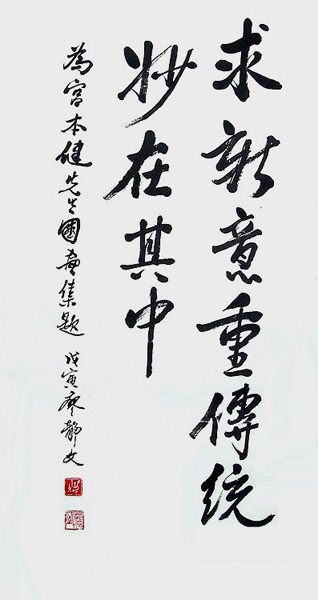 求新意重傳統
妙在其中
為宮本健先生國畫集題 戊寅廖靜文